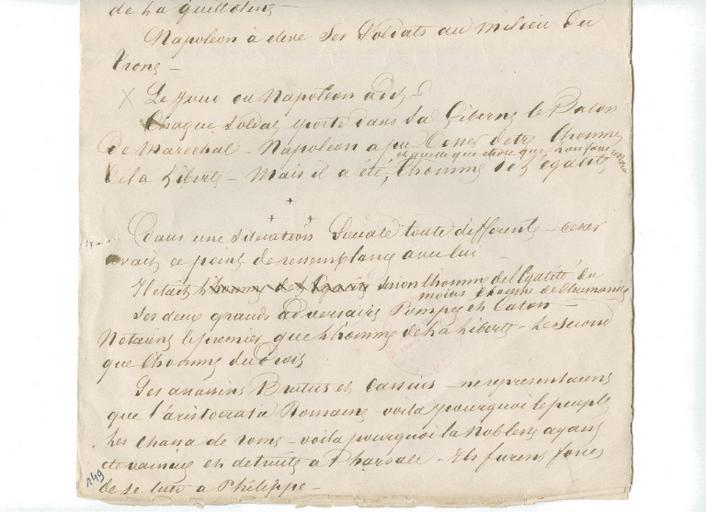 de la guillotine —
Napoleon a élevé ses Soldats au milieu du
trone —
X Le jour ou Napoleon a dit
Chaque Soldat porte dans sa Giberne le Baton
de Marechal — Napoleon a pu cesser d'etre l'homme
et quelque chose que
de la Liberté — Mais il a été l'homme de l'egalité
Dans une situation Sociale toute differente — Cesar
avait ce point de ressemblance avec lui —
Il etait l'homme de l'egalité sinon l'homme de l'Egalité du
moins l'homme de l'humanité
Ses deux grands adversaires Pompée et Caton
N'etaient le premier que l'homme de la liberté — Le second
que l'homme du Droit
Ses assassins Brutus et Cassius — ne representaient
que l'aristocratie Romaine voila pourquoi le peuple
les chassa de rome — voila pourquoi la Noblesse ayant
été vaincue et detruite a Pharsale — Ils furent forcés
de se tuer a Philippe —
149